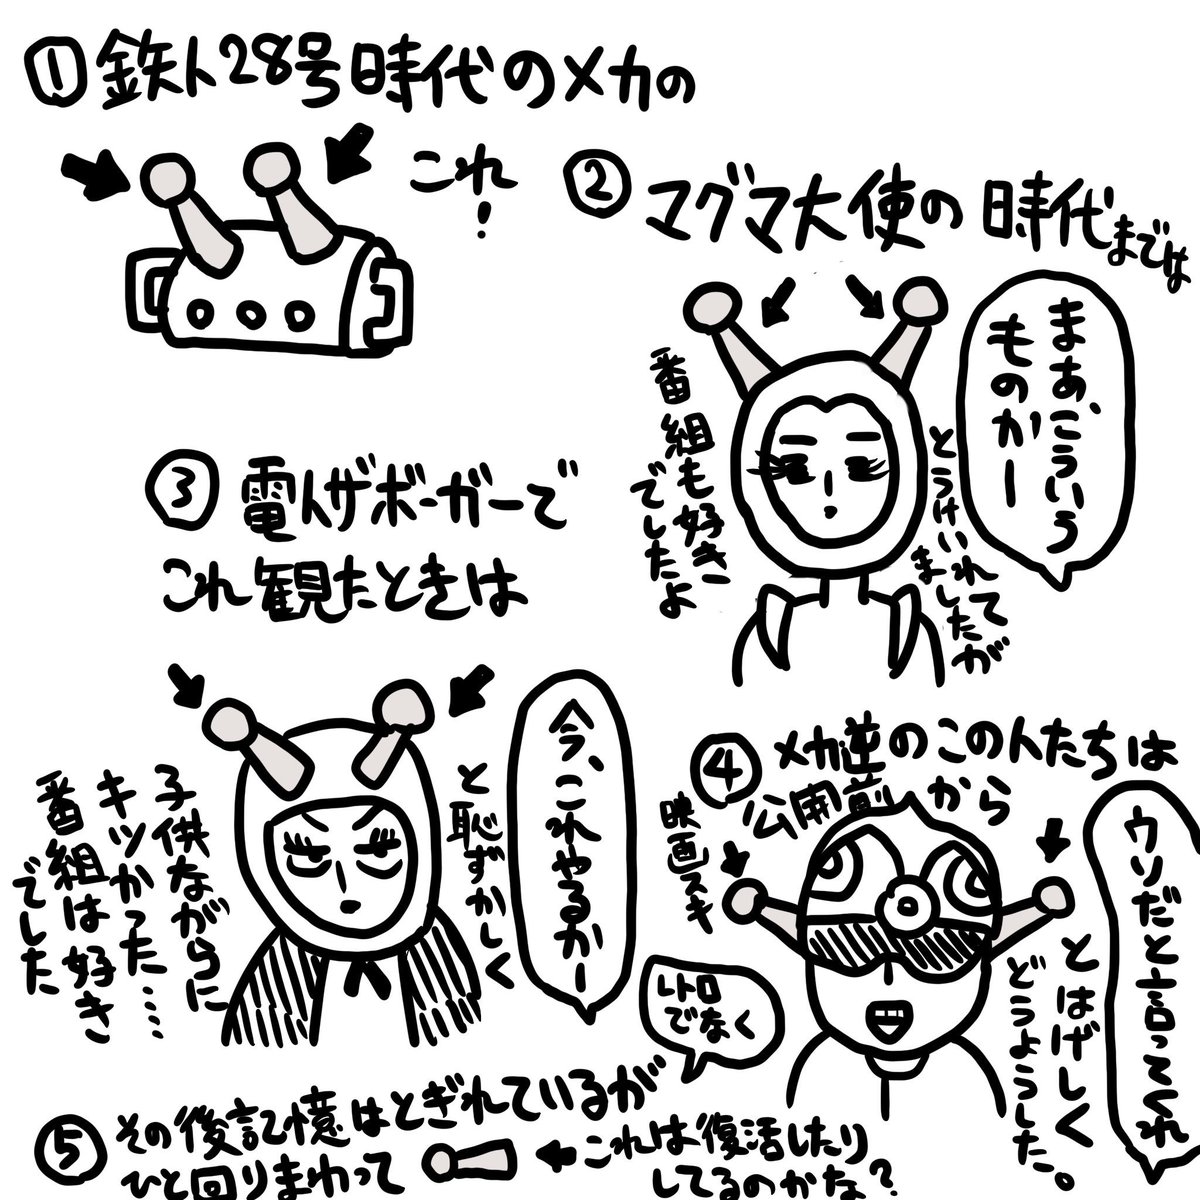 ①鉄人28号時代のメカの
これ!
②マグマ大使の時代までは
まあ、こういう
ものかー
とうけいれて
ましたが
番組も好き
でしたよ
③電人ザボーガーで
これ観たときは
今、これやるかー
と恥ずかしく
子供ながらに
キツかった……
番組は好き
でした
④メカ逆のこの人たちは
公開前から
ウソだと言ってくれ
とはげしく
どうようした。
映画スキ
レトロ
でなく
⑤その後記憶はとぎれているが
ひと回りまわって
これは復活したり
してるのかな?